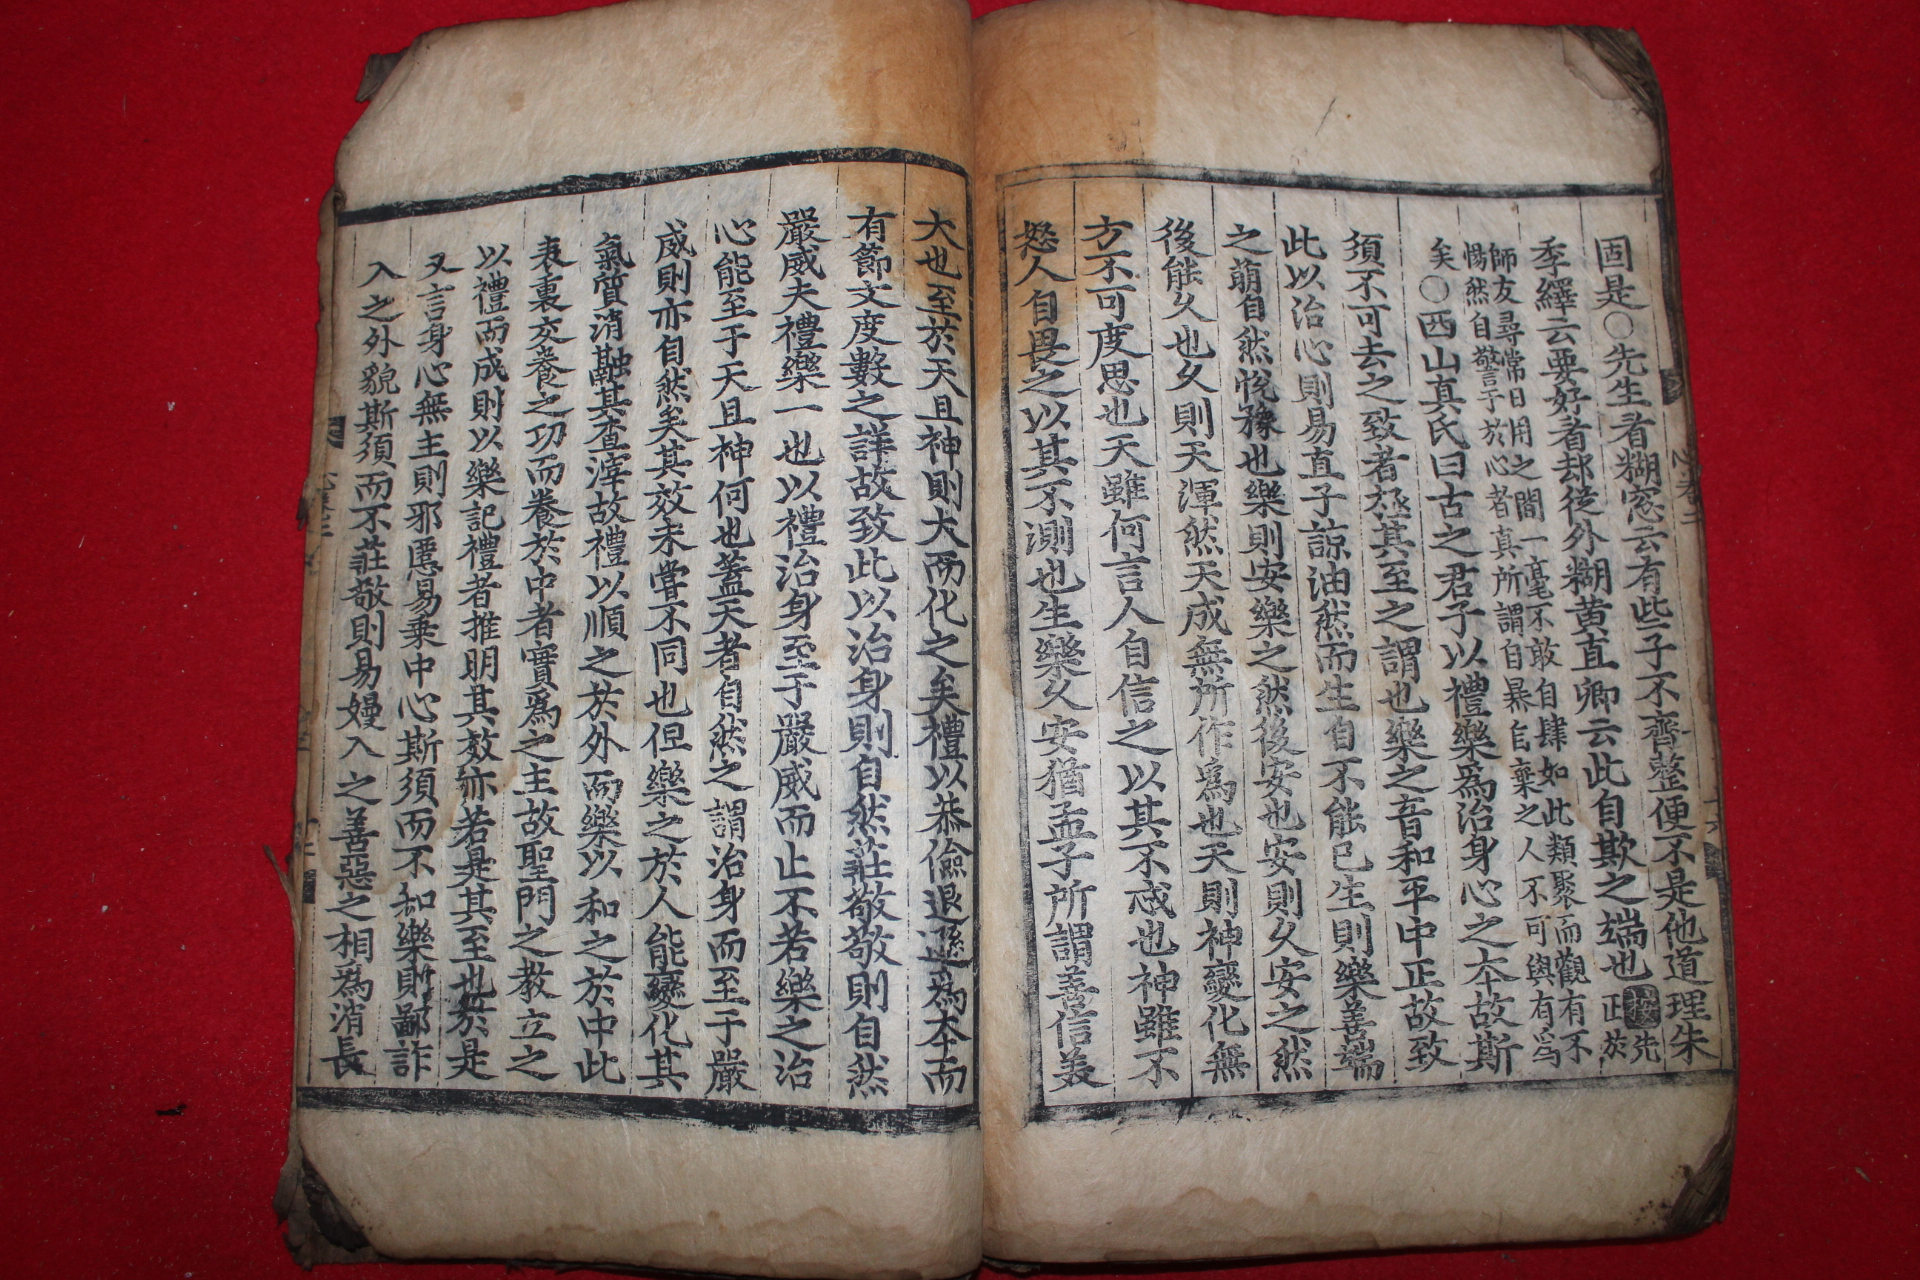 固是○先生者糊窓云有些子不齊整便不是他道理朱
季繹云要好看却從外糊黃直卿云此自欺之端也按正於先
師友尋常日用之間一毫不敢自肆如此類聚而觀有不
惕然自警于於心者真所謂自暴自棄之人不可與有爲
矣○西山真氏曰古之君子以禮樂爲治身心之本故斯
須不可去之致者極其至之謂也樂之音和平中正故致
此以治心則易直子諒油然而生自不能已生則樂善端
之萌自然悅豫也樂則安樂之然後安也安則久安之然
後能久也久則天渾然天成無所作爲也天則神變化無
方不可度思也天雖何言人自信之以其不忒也神雖不
怒人自畏之以其不測也生樂久安猶孟子所謂善信美
大也至於天且神則大而化之矣禮以恭儉退遜爲本而
有節文度數之詳故致此以治身則自然莊敬敬則自然
嚴威夫禮樂一也以禮治身至于嚴威而止不若樂之治
心能至于天且神何也蓋天者自然之謂治身而至于嚴
威則亦自然矣其效未嘗不同也但樂之於人能變化其
氣質消融其查滓故禮以順之於外而樂以和之於中此
表裏交養之功而養於中者實爲之主故聖門之教立之
以禮而成則以樂記禮者推明其效亦若是其至也於是
又言身心無主則邪慝易乘中心斯須而不和樂則鄙詐
入之外貌斯須而不莊敬則易嫚入之善惡之相為消長